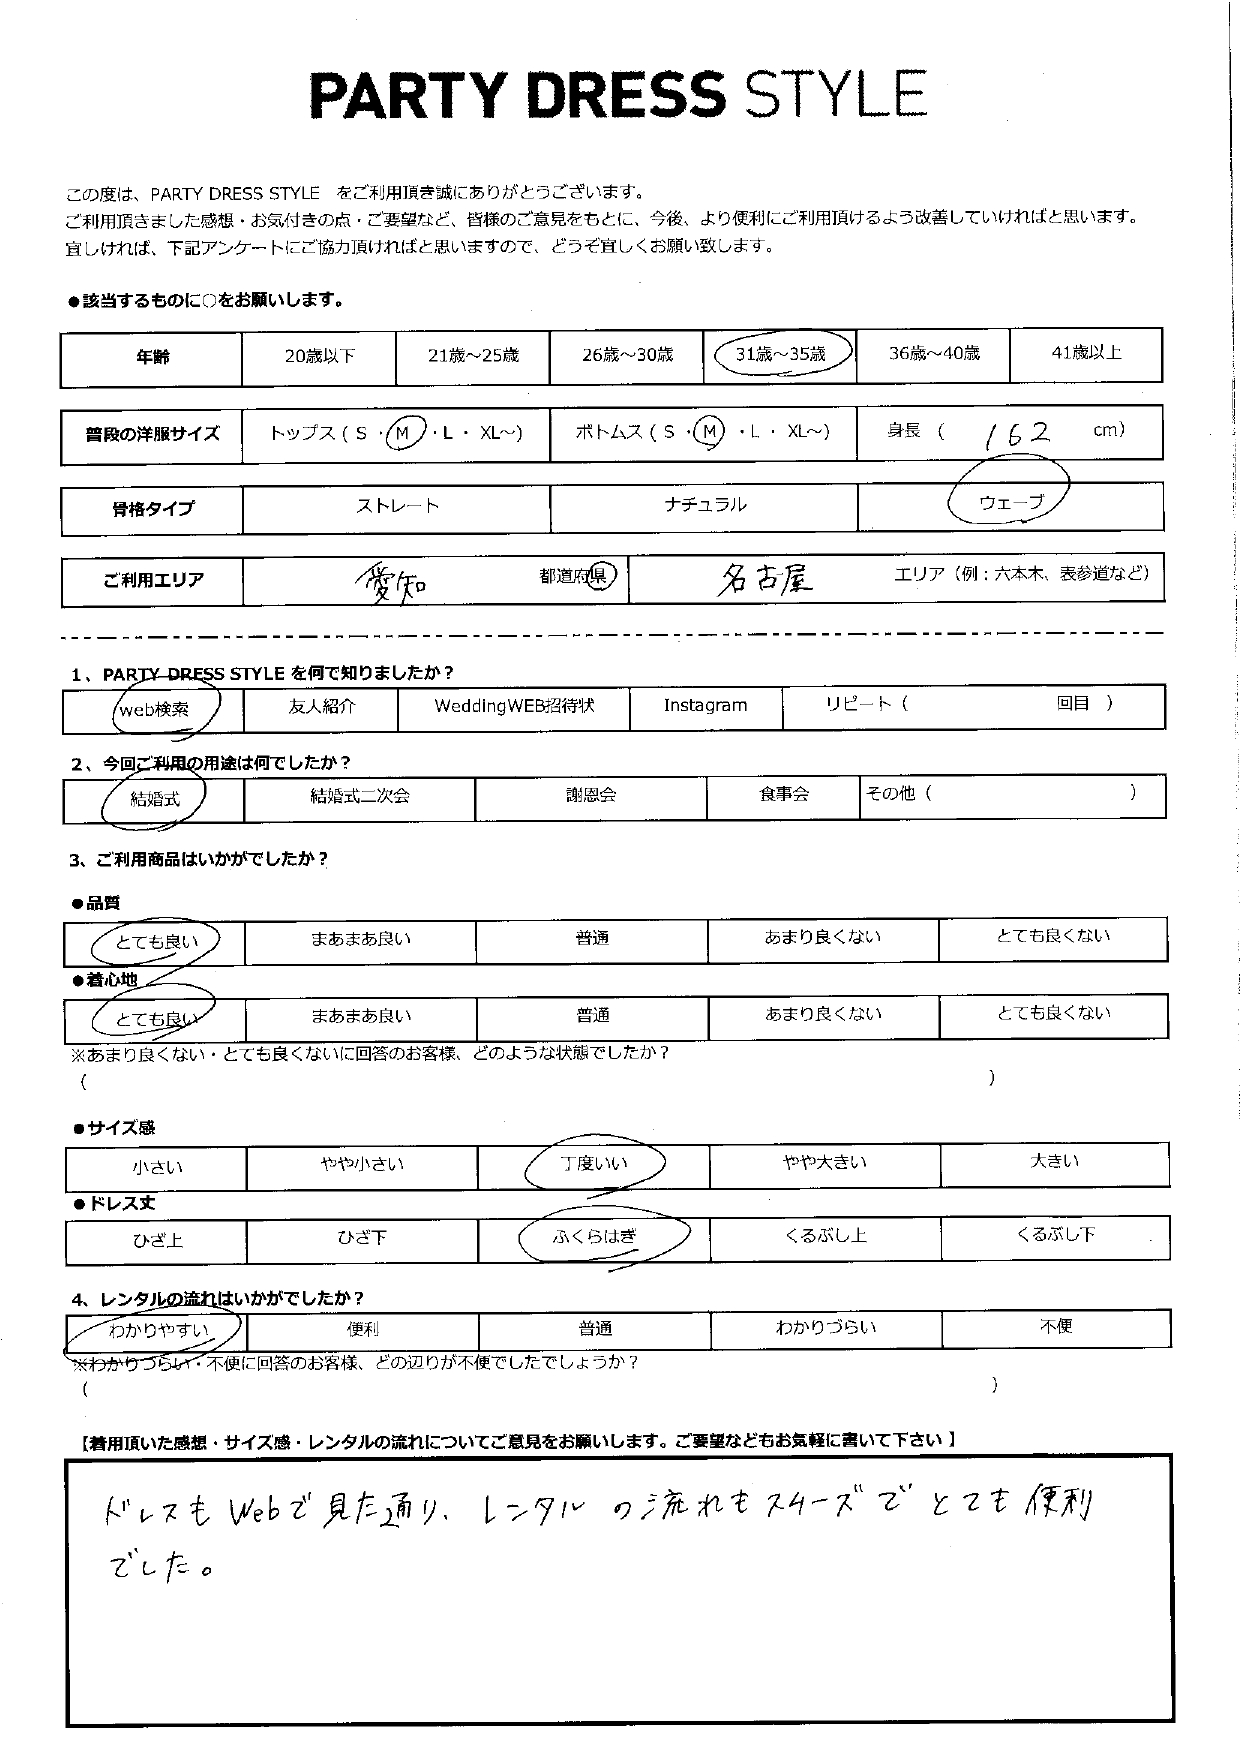 PARTY DRESS STYLE
この度は、PARTY DRESS STYLE をご利用頂き誠にありがとうございます。
ご利用頂きました感想・お気付きの点・ご要望など、皆様のご意見をもとに、今後、より便利にご利用頂けるよう改善していければと思います。
宜しければ、下記アンケートにご協力頂ければと思いますので、どうぞ宜しくお願い致します。
●該当するものに○をお願いします。
年齢 20歳以下 21歳～25歳 26歳～30歳 31歳～35歳 36歳～40歳 41歳以上
普段の洋服サイズ トップス ( S ・ M ・ L ・ XL～) ボトムス ( S ・ M ・ L ・ XL～) 身長 ( 162 cm)
骨格タイプ ストレート ナチュラル ウェーブ
ご利用エリア 愛知 都道府県 名古屋 エリア（例：六本木、表参道など）
1、PARTY DRESS STYLE を何で知りましたか？
web検索 友人紹介 WeddingWEB招待状 Instagram リピート ( 回目 )
2、今回ご利用の用途は何でしたか？
結婚式 結婚式二次会 謝恩会 食事会 その他 ( )
3、ご利用商品はいかがでしたか？
●品質
とても良い まあまあ良い 普通 あまり良くない とても良くない
●着心地
とても良い まあまあ良い 普通 あまり良くない とても良くない
※あまり良くない・とても良くないに回答のお客様、どのような状態でしたか？
( )
●サイズ感
小さい やや小さい 丁度いい やや大きい 大きい
●ドレス丈
ひざ上 ひざ下 ふくらはぎ くるぶし上 くるぶし下
4、レンタルの流れはいかがでしたか？
わかりやすい 便利 普通 わかりづらい 不便
※わかりづらい・不便に回答のお客様、どの辺りが不便でしたでしょうか？
( )
【着用頂いた感想・サイズ感・レンタルの流れについてご意見をお願いします。ご要望などもお気軽に書いて下さい 】
ドレスもWebで見た通り、レンタルの流れもスムーズでとても便利
でした。